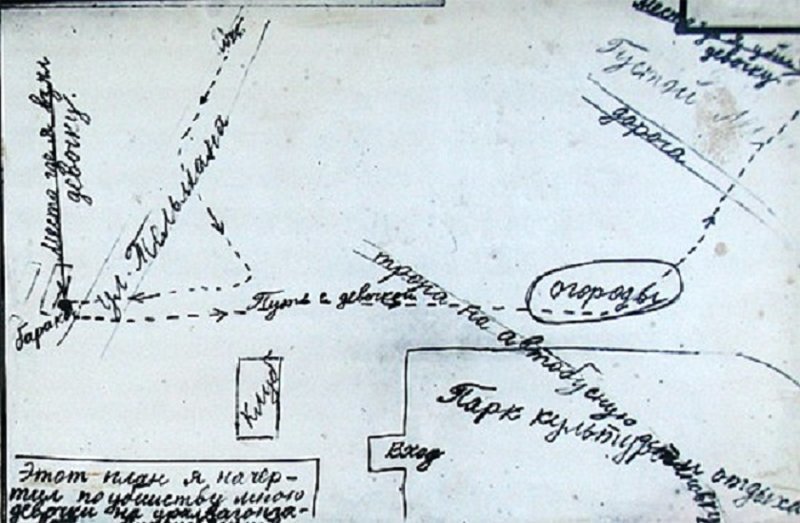 место где я взял
девочку.
ул. Тельмана
место где я убил
девочку.
Густой лес
дорога
бараки
Путь с девочкой
огороды
тропа на автобусную остановку
Клуб
Вход
Парк культуры и отдыха
Этот план я начер-
тил по убийству мною
девочки на уралвагонза-